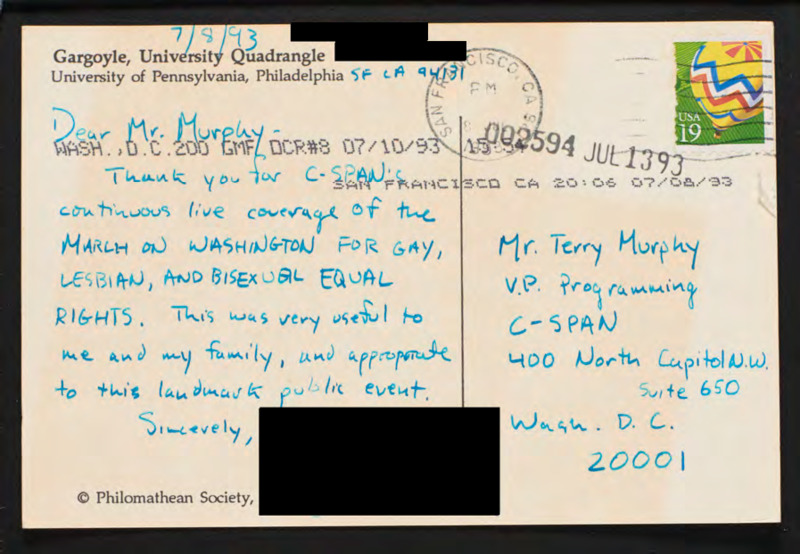 7/8/93
Gargoyle, University Quadrangle
University of Pennsylvania, Philadelphia SF CA 94131
Dear Mr. Murphy-
WASH.,D.C.200 GMF, OCR#8 07/10/93
Thank you for C-SPAN's
continuous live coverage of the
MARCH ON WASHINGTON FOR GAY,
LESBIAN, AND BISEXUAL EQUAL
RIGHTS. This was very useful to
me and my family, and appropriate
to this landmark public event.
Sincerely,
© Philomathean Society,
SAN FRANCISCO, CA
PM
USA
19
002594 JUL 13 93
SAN FRANCISCO CA 20:06 07/08/93
Mr. Terry Murphy
V.P. Programming
C-SPAN
400 North Capitol N.W.
Suite 650
Wash. D. C.
20001